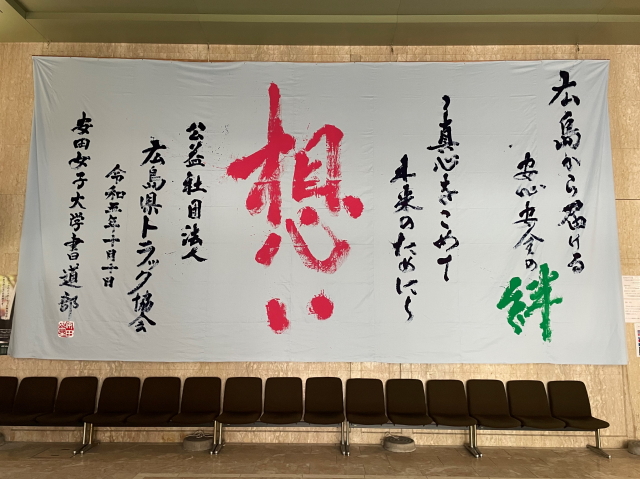 広島から届ける
安心安全の
絆
〜真心をこめて
未来のために〜
想い
公益社団法人
広島県トラック協会
令和五年十月十日
安田女子大学書道部